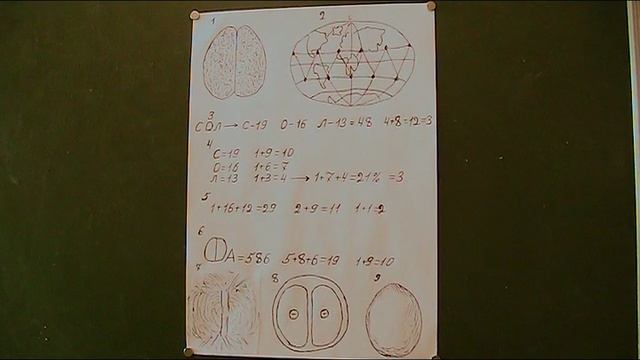 1 2
3
СОЛ → С-19 О-16 Л-13=48 4+8=12=3
4
С=19 1+9=10
О=16 1+6=7
Л=13 1+3=4 → 1+7+4=21% =3
5
1+16+12=29 2+9=11 1+1=2
6
А=586 5+8+6=19 1+9=10
7 8 9